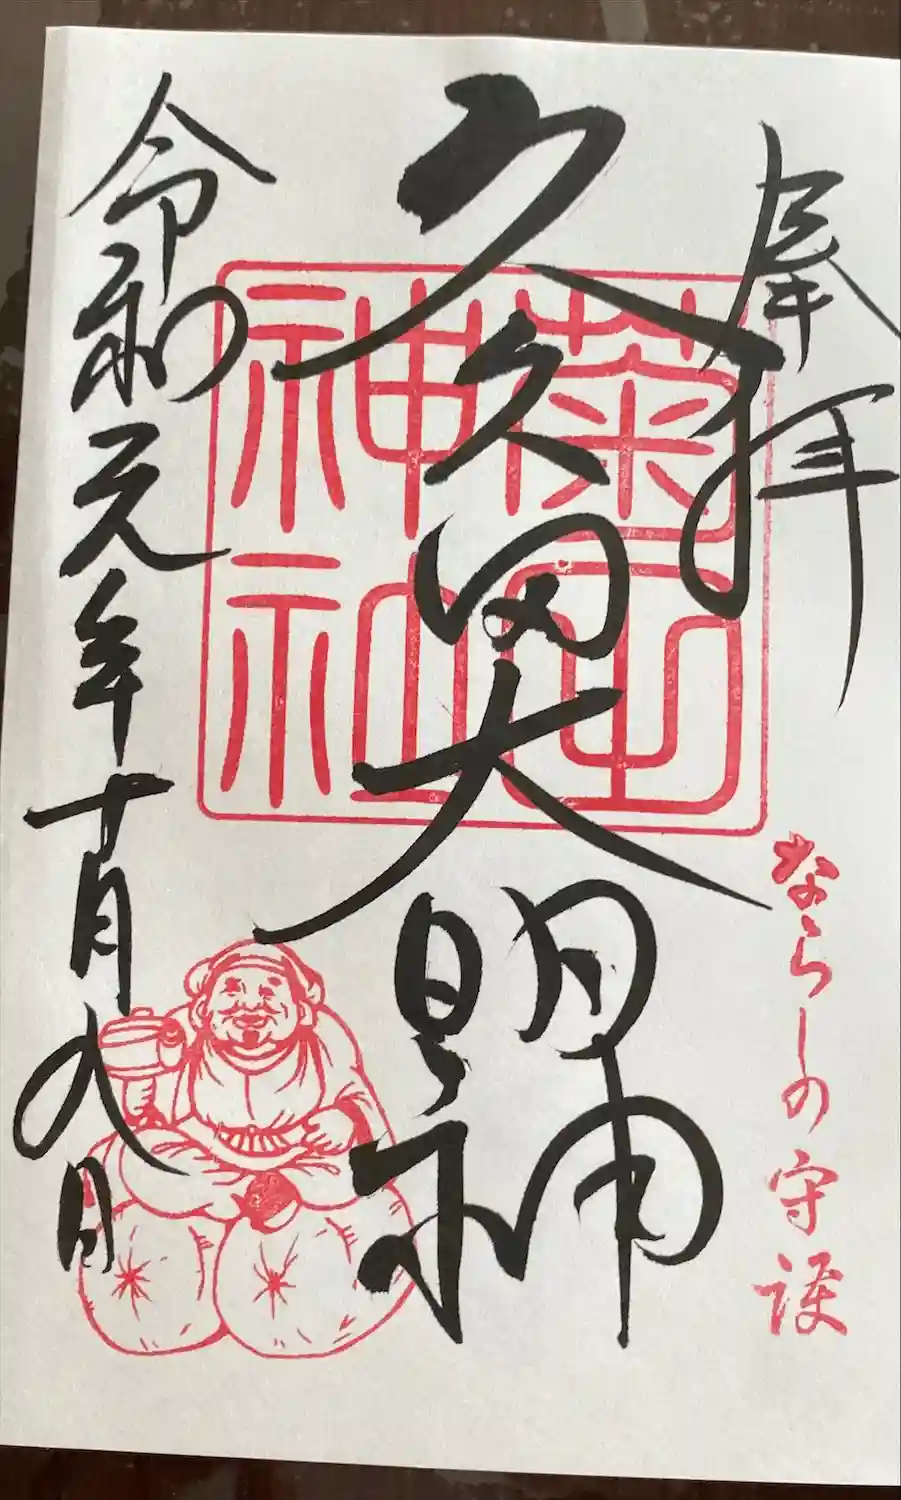 奉拝
ならしの守護
久久田大明神
菊田
神社
令和元年十月九日